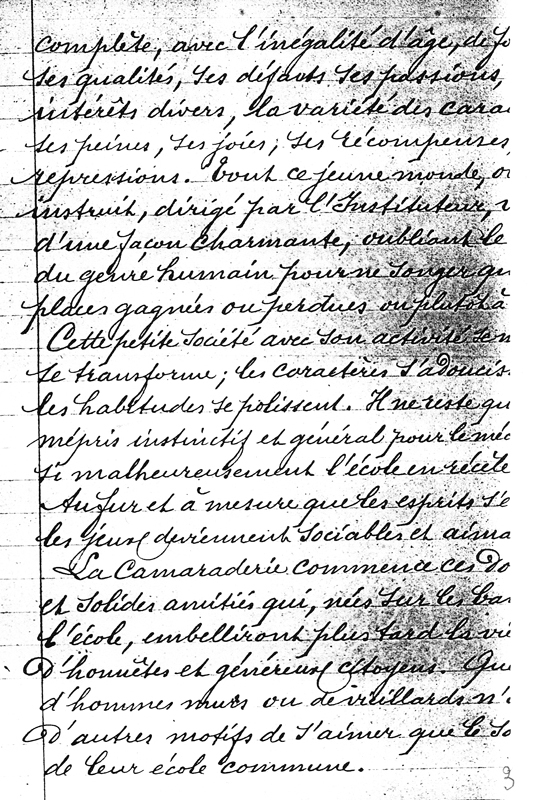 complète, avec l'inégalité d'âge, de fo
ses qualités, ses défauts ses passions,
intérêts divers, la variété des cara
ses peines, ses joies; ses récompenses,
répressions. Tout ce jeune monde, 
instruit, dirigé par l'Instituteur, 
d'une façon charmante, oubliant le
du genre humain pour ne songer qu
places gagnées ou perdues ou plutôt à
Cette petite société avec son activité sem
se transforme; les caractères s'adoucis
les habitudes se polissent. Il ne reste qu
mépris instinctif et général pour le méc
si malheureusement l'école en récèle
Au fur et à mesure que les esprits s'é
les jeux deviennent sociables et aima
La Camaraderie commence ces do
et solides amitiés qui, nées sur les ba
l'école, embelliront plus tard la vie
d'honnêtes et généreux citoyens. Que
d'hommes murs ou de vieillards n'
d'autres motifs de s'aimer que le so
de leur école commune.
3